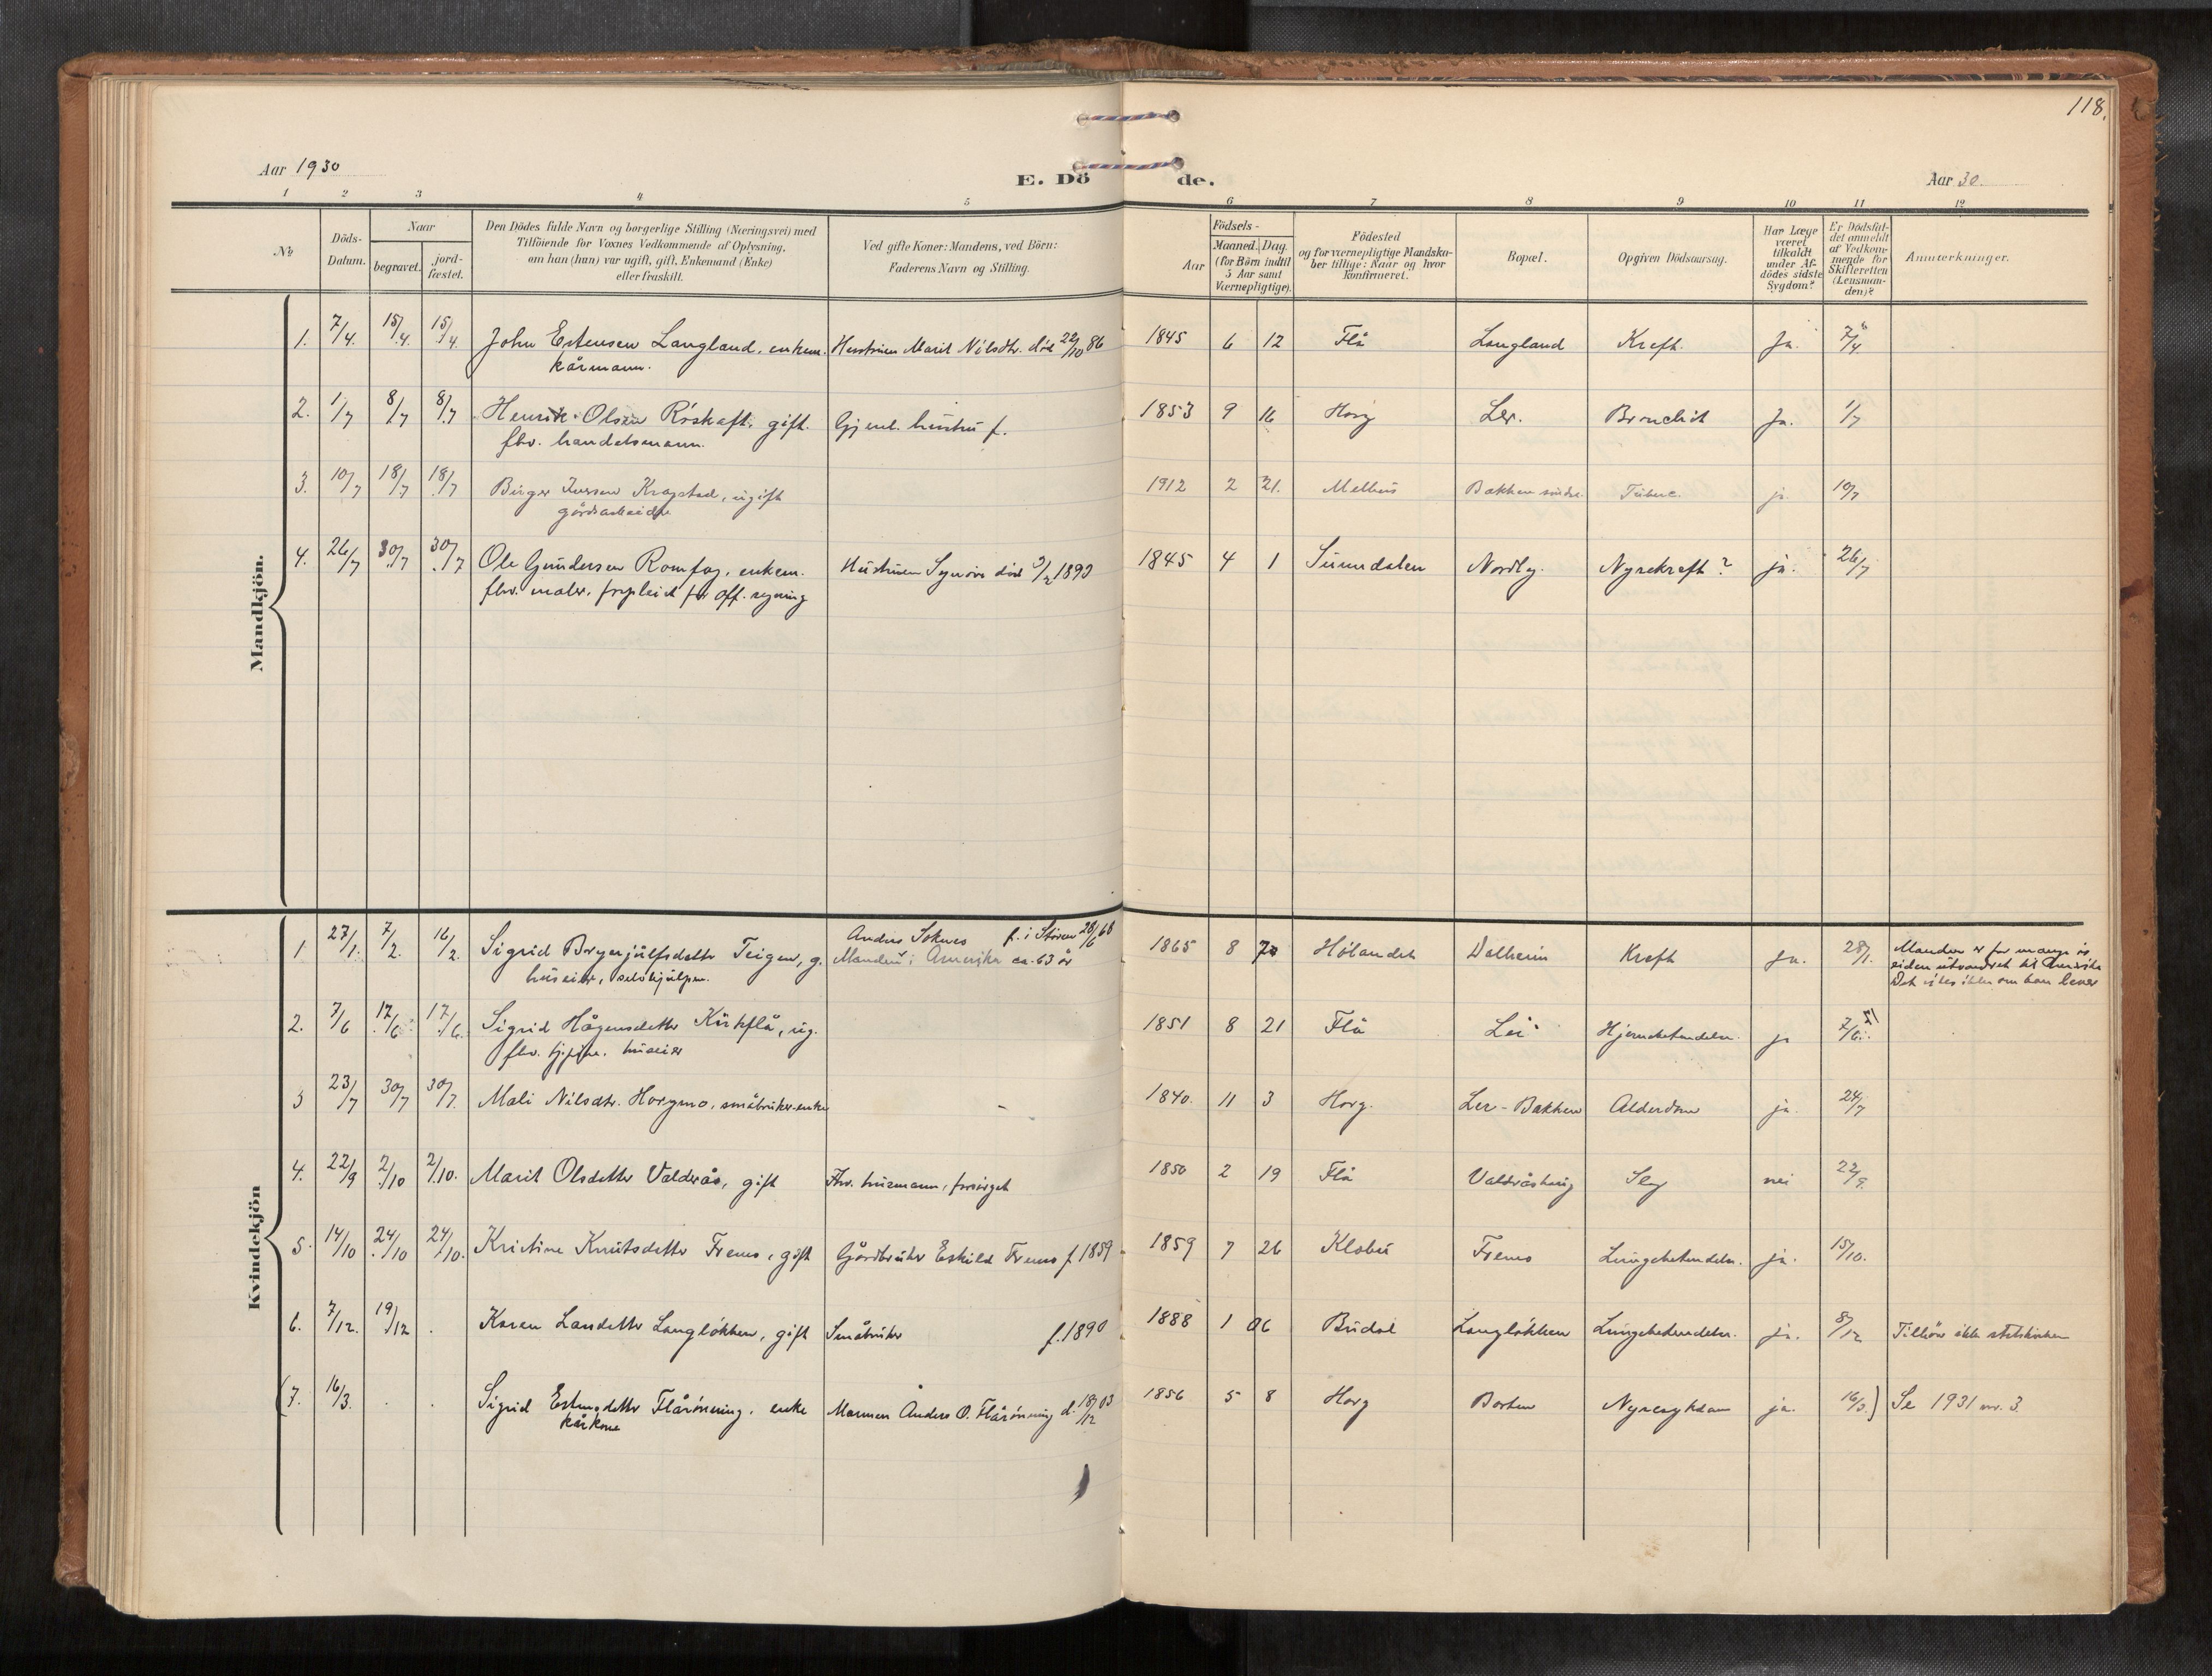 118.
Aar 1930
E. Döde.
Aar 30.
1 2 3 4 5 6 7 8 9 10 11 12
No.
Döds-Datum.
Naar
begravet.
jord-fæstet.
Den Dödes fulde Navn og borgerlige Stilling (Næringsvei) med
Tilföiende for Voxnes Vedkommende af Oplysning,
om han (hun) var ugift, gift, Enkemand (Enke)
eller fraskilt.
Ved gifte Koner: Mandens, ved Börn:
Faderens Navn og Stilling.
Födsels-
Aar
Maaned. Dag.
(for Börn indtil
5 Aar samt
Værnepligtige).
Födested
og for værnepligtige Mandska-
ber tillige: Naar og hvor
konfirmeret.
Bopæl.
Opgiven Dödsaarsag.
Har Læge
været
tilkaldt
under Af-
dödes sidste
Sygdom?
Er Dödsfal-
det anmeldt
af Vedkom-
mende for
Skifteretten
(Lensman-
den)?
Anmærkninger.
Mandkjön.
1. 7/4. 15/4. 15/4. John Estensen Langland, enkem. Hustruen Marit Nilsdtr. död 22/10 86 1845 6 12 Flå Langland Kreft. Ja. 7/4
kårmann.
2. 1/7 8/7 8/7 Henrik Olsen Röskaft, gift. Gjenl. hustru f. 1853 9 16 Horg Ler. Bronchit Ja. 1/7
fhv. handelsmann.
3. 10/7 18/7 18/7 Birger Iversen Kragstad, ugift 1912 2 21. Melhus Bakken söndre. Tuberc. ja 10/7
gårdsarbeider
4. 26/7 30/7 30/7 Ole Gundersen Romfog, enkem. Hustruen Synöve död 1893 1845 4 1 Sunndalen Nordly. Nyrekreft? ja. 26/7
fhv. maler, forpleiet for off. regning
Kvindekjön
1 27/1. 7/2. 16/2. Sigrid Brynjulfsdatter Teigen, g. Anders Soknes f. i Stören 28/6 68 1865 8 Hölandet Dalheim Kreft Ja. 28/1. Manden er for mange år
huseier, selvhjulpen. Manden i Amerika ca. 63 år siden utvandret til Amerika
Det vites ikke om han lever
2. 7/6 17/6 17/6. Sigrid Hågensdatter Kirkflå, ug. 1851 8 21 Flå Ler Hjernebetendelse ja 7/6
fhv. tjener. huseier
3 23/7 30/7 30/7. Mali Nilsdtr. Horgmo, småbruker-enke – 1840. 11 3 Horg. Ler-Bakken Alderdom ja 24/7
4. 22/9 2/10 2/10. Marit Olsdatter Valderås, gift Fhv. husmann, forsörget 1850 2 19 Flå Valdråshaug Slag nei 22/9.
5. 14/10 24/10 24/10. Kristine Knutsdatter Fremo, gift Gårdbruker Eskild Fremo f. 1859 1859 7 26 Klæbu Fremo Lungebetendelse. ja. 15/10.
6. 7/12. 19/12 . Karen Larsdatter Langlökken, gift Småbruker f. 1890 1888 1 06 Budal Langlökken Lungebetendelse. ja. 8/12 Tilhörer ikke statskirken
(7. 16/3. . . Sigrid Estensdatter Flårönning, enke Mannen Anders O. Flårönning d. 18/12 03 1856 5 8 Horg Borten Nyresykdom ja. 16/3.) Se 1931 nr. 3.
kårkone